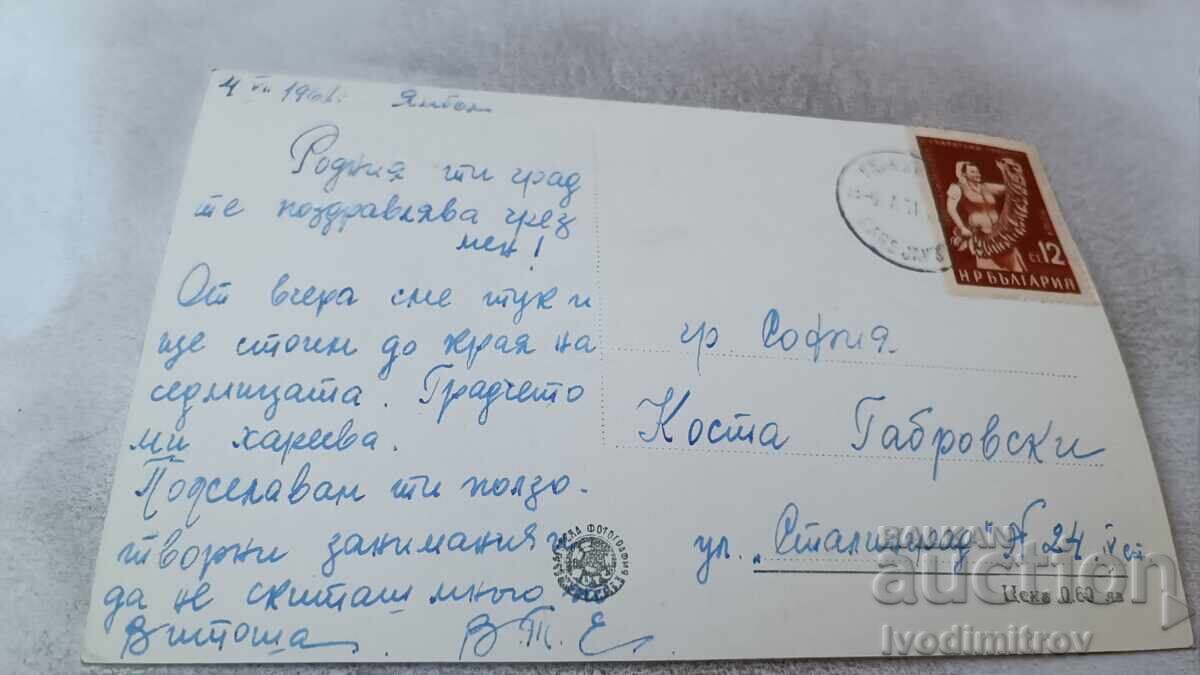 4 VII 1961. Ямбол
Родния ти град
те поздравлява чрез
мен!
От вчера сме тук и
ще стоим до края на
седмицата. Градчето
ми харесва.
Пожелавам ти ползо-
творни занимания и
да не скиташ много по
Витоша. В Т Е
НР БЪЛГАРИЯ
СТ 12
гр. София
Коста Габровски
ул. „Сталинград" № 24 IV ет.
Цена 0.60 лв
ФОТОГРАФИЯ
BALKAN
auction
Ivodimitrov